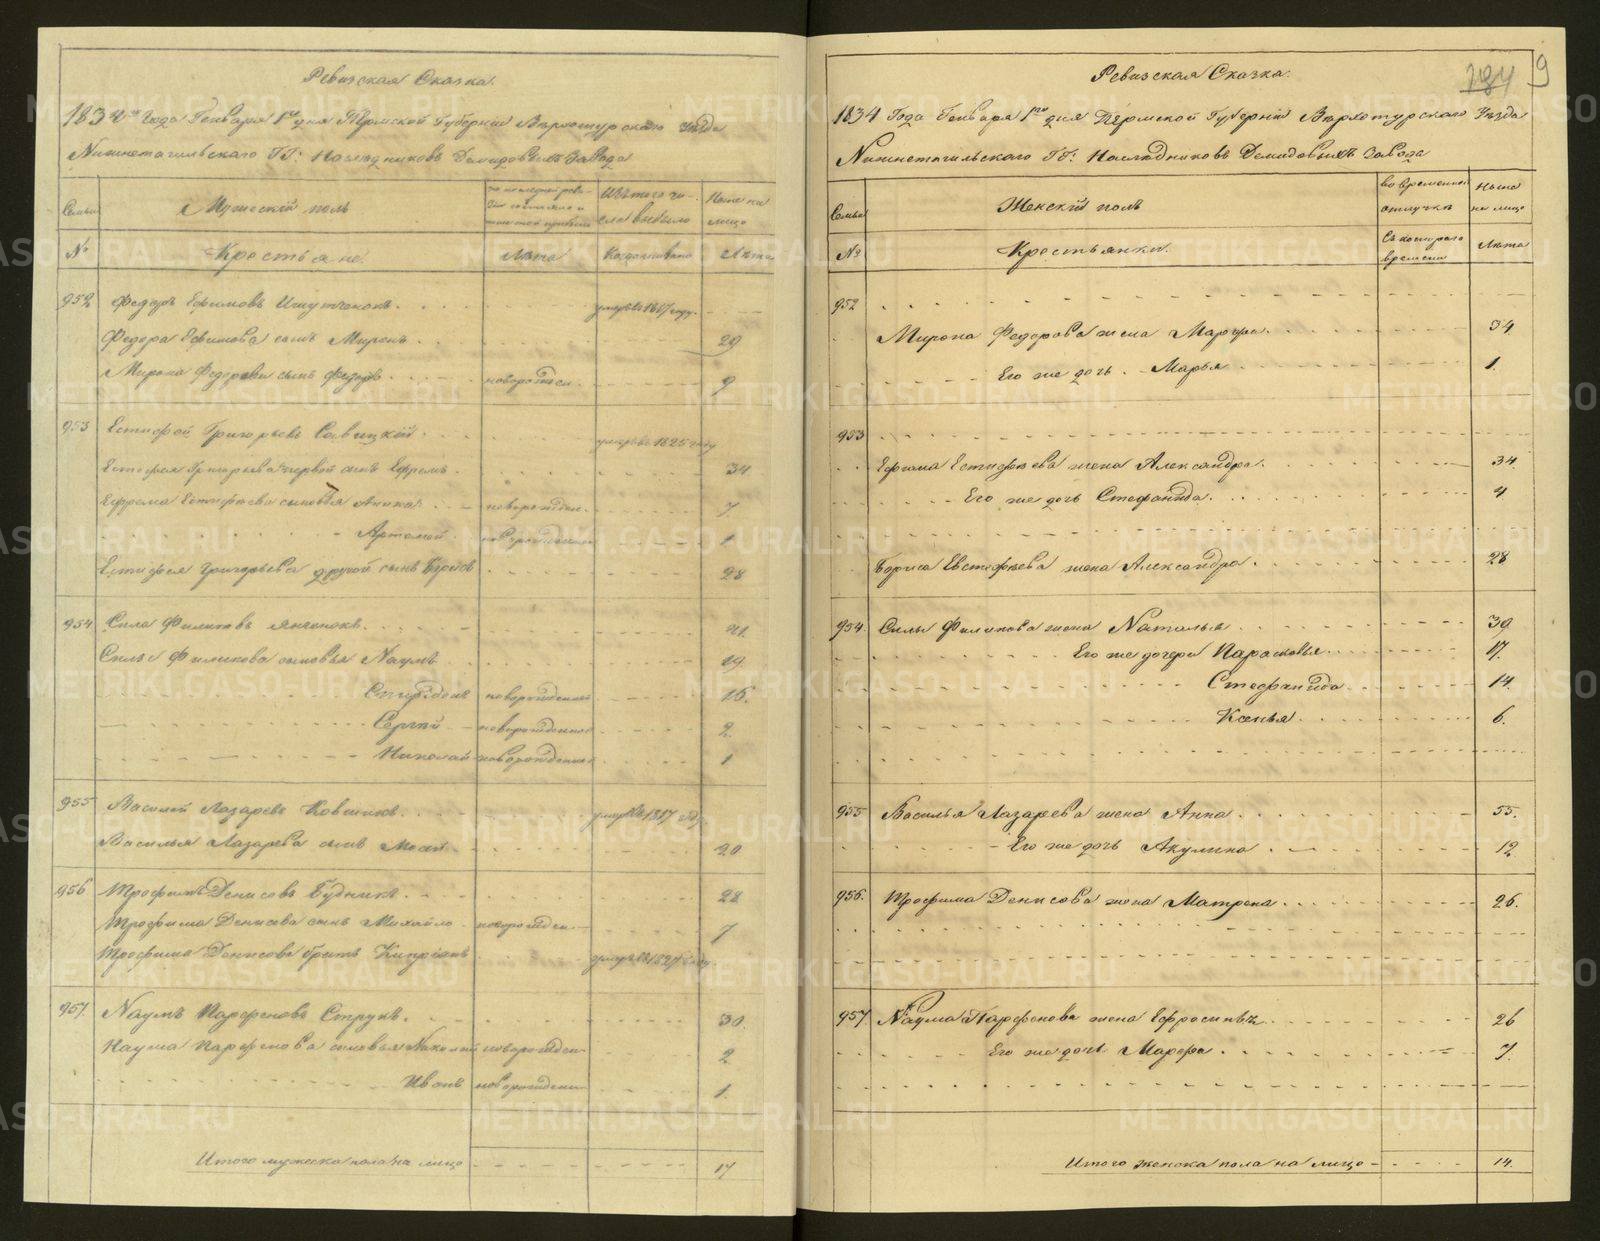 Ревизская Сказка.
1834 го Года Генваря 1го дня Пермской Губернии Верхотурскаго Уезда
Нижнетагильскаго ГГ: Наследниковъ Демидовыхъ Завода
Семьи
Мужескій полъ
Изъ того чи-
сла выбыло
Ныне на
лицо
№
Крестьяне
Лета
Когда именно
Лета
952 Федоръ Ефимовъ умре въ 1817 году.
Федора Ефимова сынъ Миронъ. 29
Мирона Федорова сынъ Федоръ новорожден. 9
953 Естифей Григорьевъ Савицкій умре въ 1825 году
Естифея Григорьева первой сынъ Ефремъ. 34
Ефрема Естифеева сыновья Аника новорожден. 7
Артамон новорожденной 1
Естифея Григорьева другой сынъ Борисъ 28
954 Сила Филиповъ Янченокъ. 41.
Силы Филипова сыновья Наумъ 19.
Спиридонъ новорожденной 16.
Сергий новорожденной 2.
Николай новорожденной 1
955 Василей Лазаревъ Ковшикъ. умре въ 1817 году
Василья Лазарева сынъ 20
956 Трофимъ Денисовъ Будникъ. 28
Трофима Денисова сынъ Михайло новорожден 7
Трофима Денисова братъ Кипріянъ умре въ 1824 году
957 Наумъ Парфеновъ Струкъ. 30.
Наума Парфенова сыновья Николай новорожден 2
Иванъ новорожден 1.
Итого мужеска пола на лицо 17
784 9
Ревизская Сказка.
1834 Года Генваря 1го дня Пермской Губерніи Верхотурскаго Уезда
Нижнетагильскаго ГГ: Наследниковъ Демидовыхъ Завода
Семьи
Женскій полъ
во временной
отлучке
Ныне
на лицо
№
Крестьянки.
Съ котораго
времени
Лета
952
Мирона Федорова жена Марфа. 34.
Его же дочь Марья 1.
953
Ефима Естифеева жена Александра. 34.
Его же дочь Стефанида. 4
Бориса Евстифеева жена Александра. 28
954. Силы Филипова жена Наталья 39
Его же дочери Парасковья 17.
Стефанида 14.
Ксенья 6.
955 Василья Лазарева жена Анна 55.
Его же дочь Акулина 12
956. Трофима Денисова жена Матрена. 26.
957 Наума Парфенова жена Ефросинья 26
Его же дочь Марфа. 7.
Итого женска пола на лицо 14.
METRIKI.GASO-URAL.RU